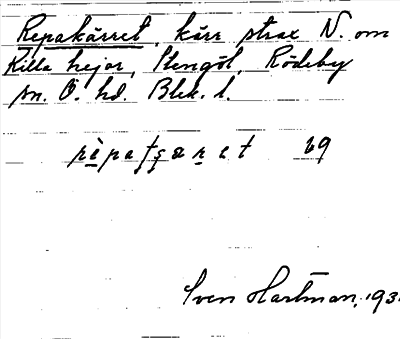 Repakärret, kärr strax N. om
Killa hejor, Stengöl, Rödeby
sn. Ö. hd. Blek. l.
69
Sven Hartman, 193